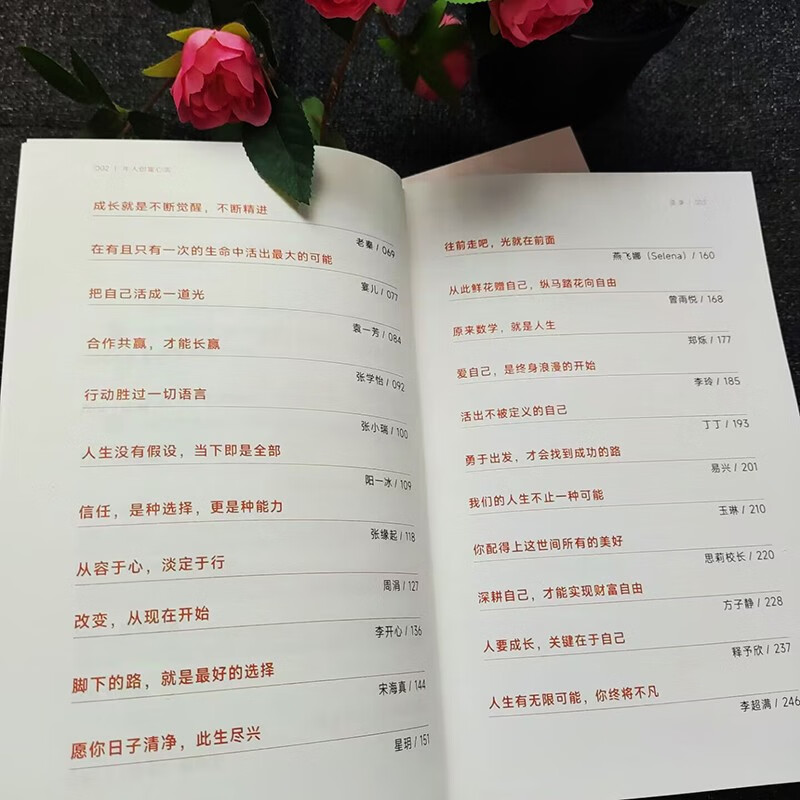 002 |
成长就是不断觉醒，不断精进
老秦 / 069
在有且只有一次的生命中活出最大的可能
宴儿 / 077
把自己活成一道光
袁一芳 / 084
合作共赢，才能长赢
张学怡 / 092
行动胜过一切语言
张小瑞 / 100
人生没有假设，当下即是全部
阳一冰 / 109
信任，是种选择，更是种能力
张缘起 / 118
从容于心，淡定于行
周涓 / 127
改变，从现在开始
李开心 / 136
脚下的路，就是最好的选择
宋海真 / 144
愿你日子清净，此生尽兴
星玥 / 151
目录 | 003
往前走吧，光就在前面
燕飞娜（Selena）/ 160
从此鲜花赠自己，纵马踏花向自由
曾雨悦 / 168
原来数学，就是人生
郑烁 / 177
爱自己，是终身浪漫的开始
李玲 / 185
活出不被定义的自己
丁丁 / 193
勇于出发，才会找到成功的路
易兴 / 201
我们的人生不止一种可能
玉琳 / 210
你配得上这世间所有的美好
思莉校长 / 220
深耕自己，才能实现财富自由
方子静 / 228
人要成长，关键在于自己
释予欣 / 237
人生有无限可能，你终将不凡
李超满 / 246